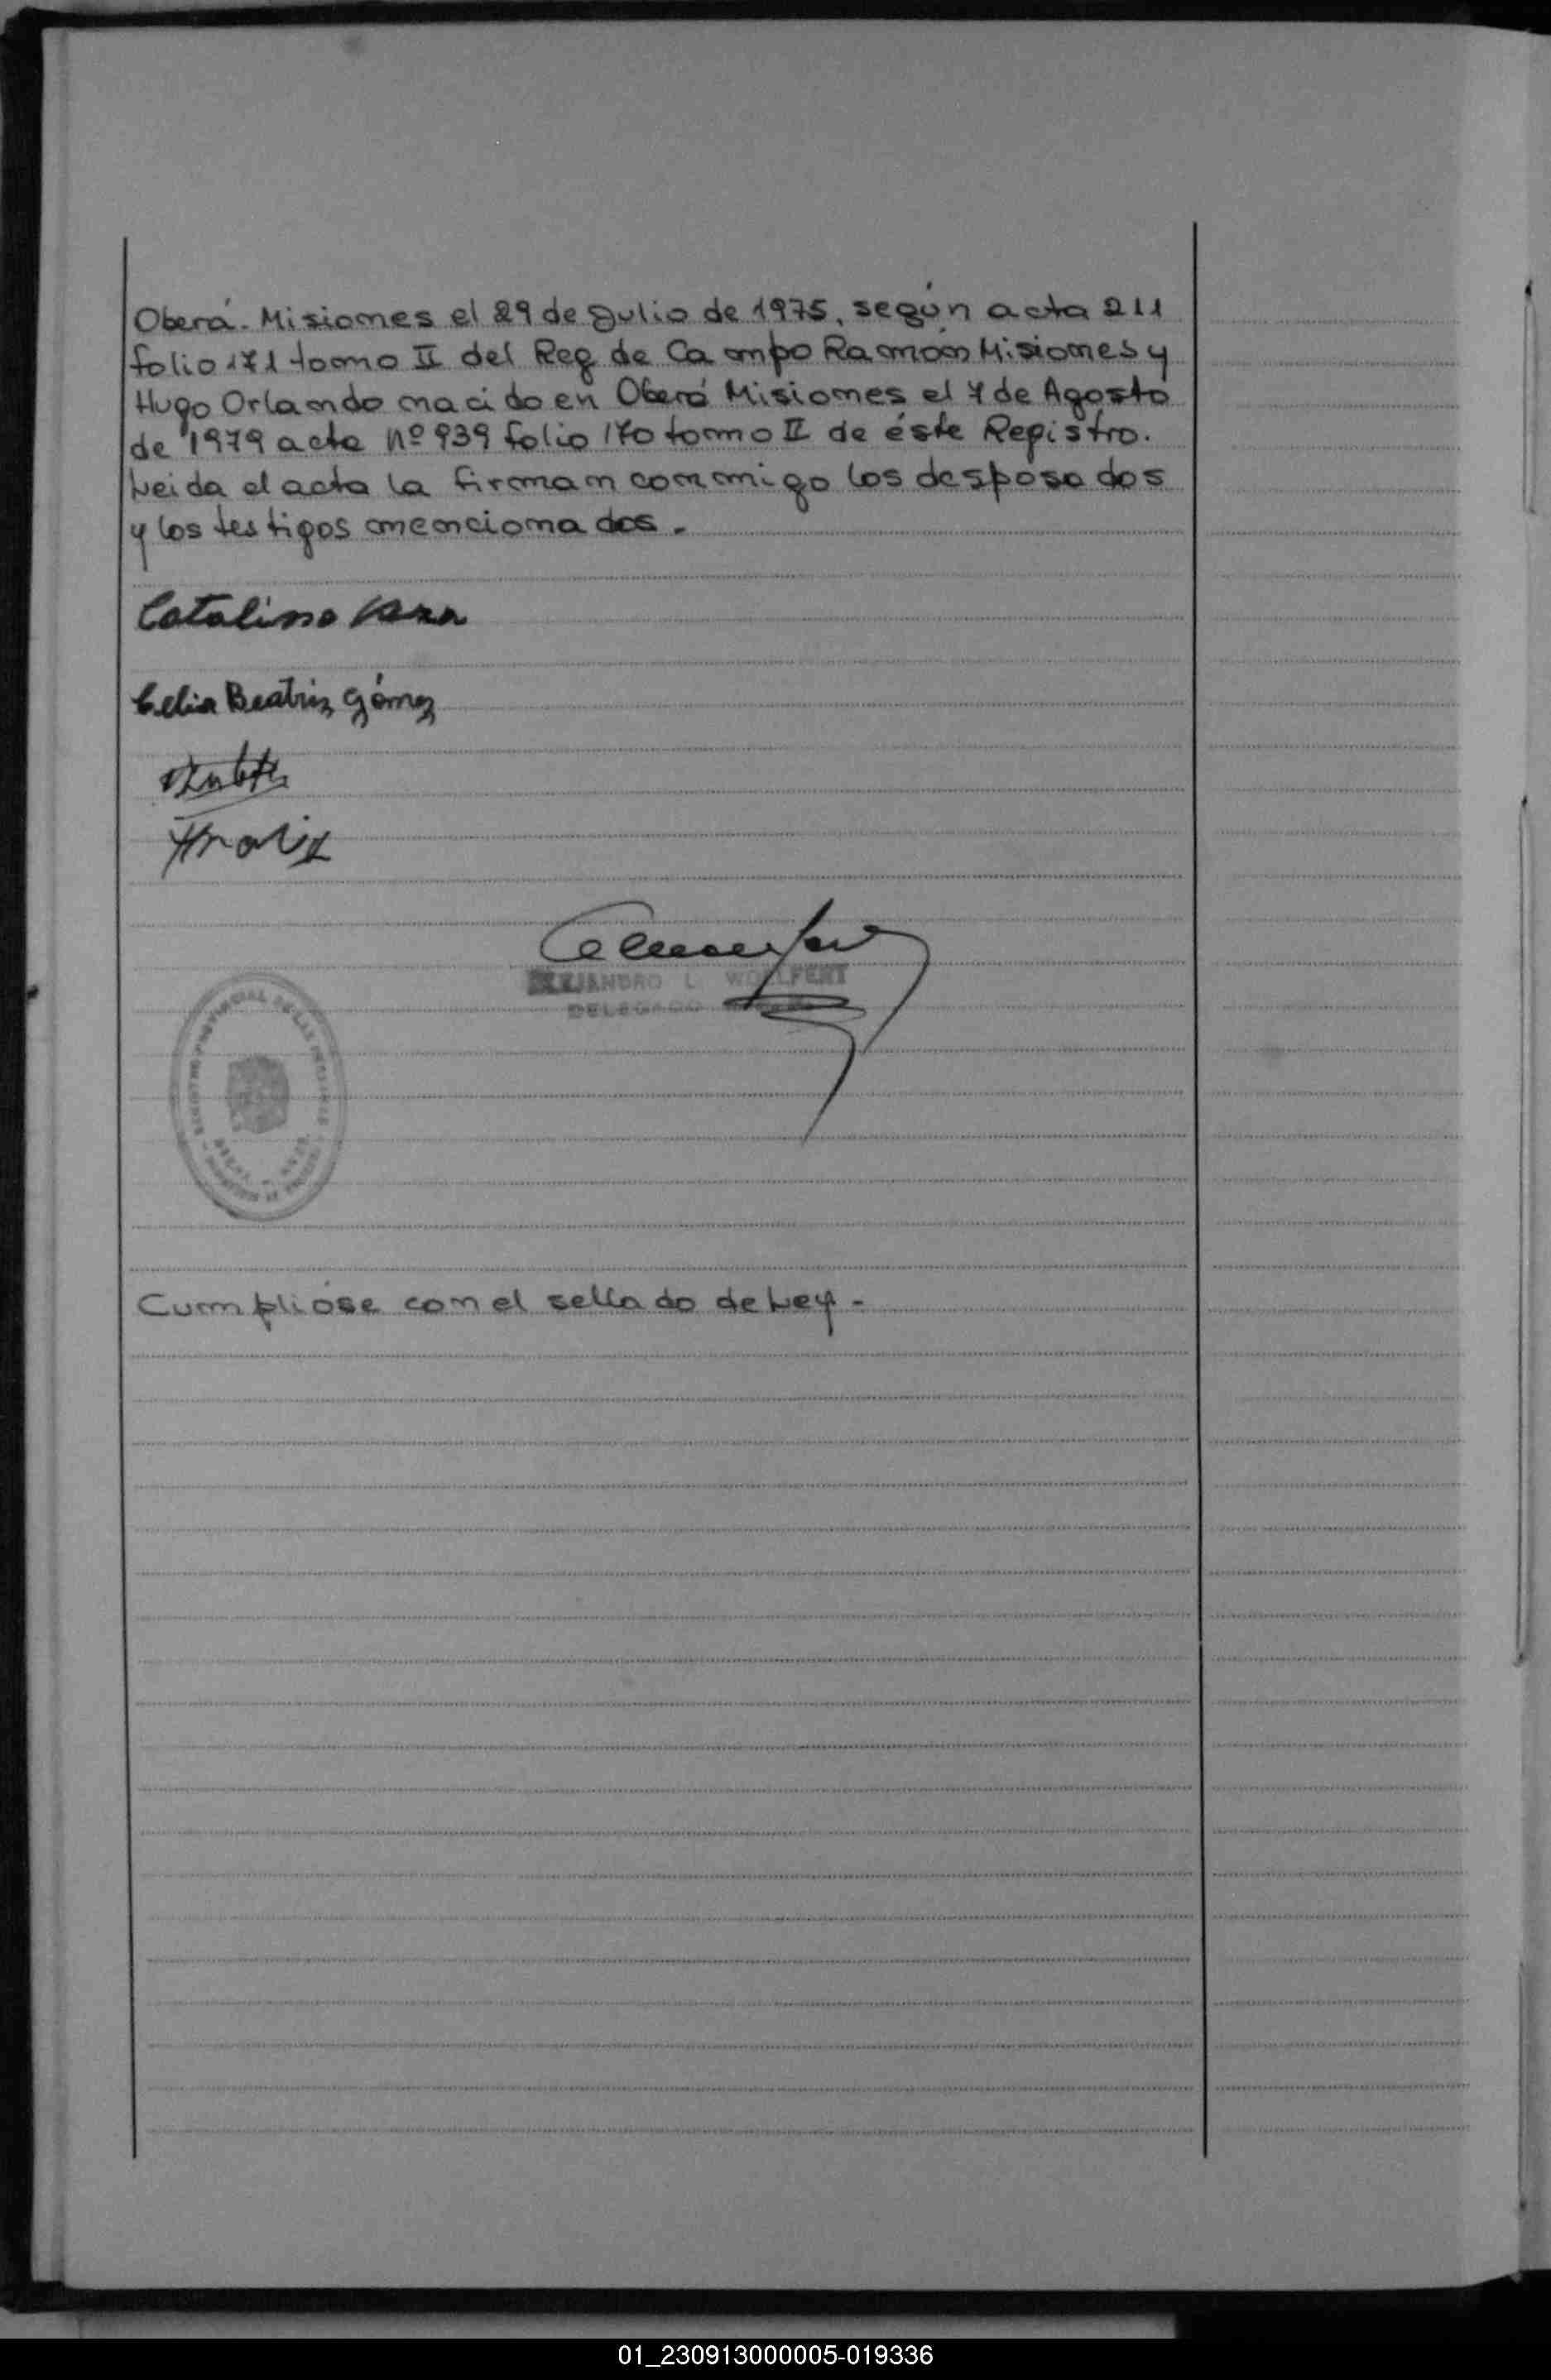 Oberá. Misiones el 29 de Julio de 1975, según acta 211
folio 171 tomo II del Reg de Campo Ramón Misiones y
Hugo Orlando nacido en Oberá Misiones el 7 de Agosto
de 1979 acta nº 939 folio 170 tomo II de éste Registro.
Leida el acta la firman conmigo los desposados
y los testigos mencionados.
Catalino
Celia Beatriz Gómez
ALEJANDRO L. WOLFERT
DELEGADO
Cumplióse con el sellado de Ley.
01_230913000005-019336